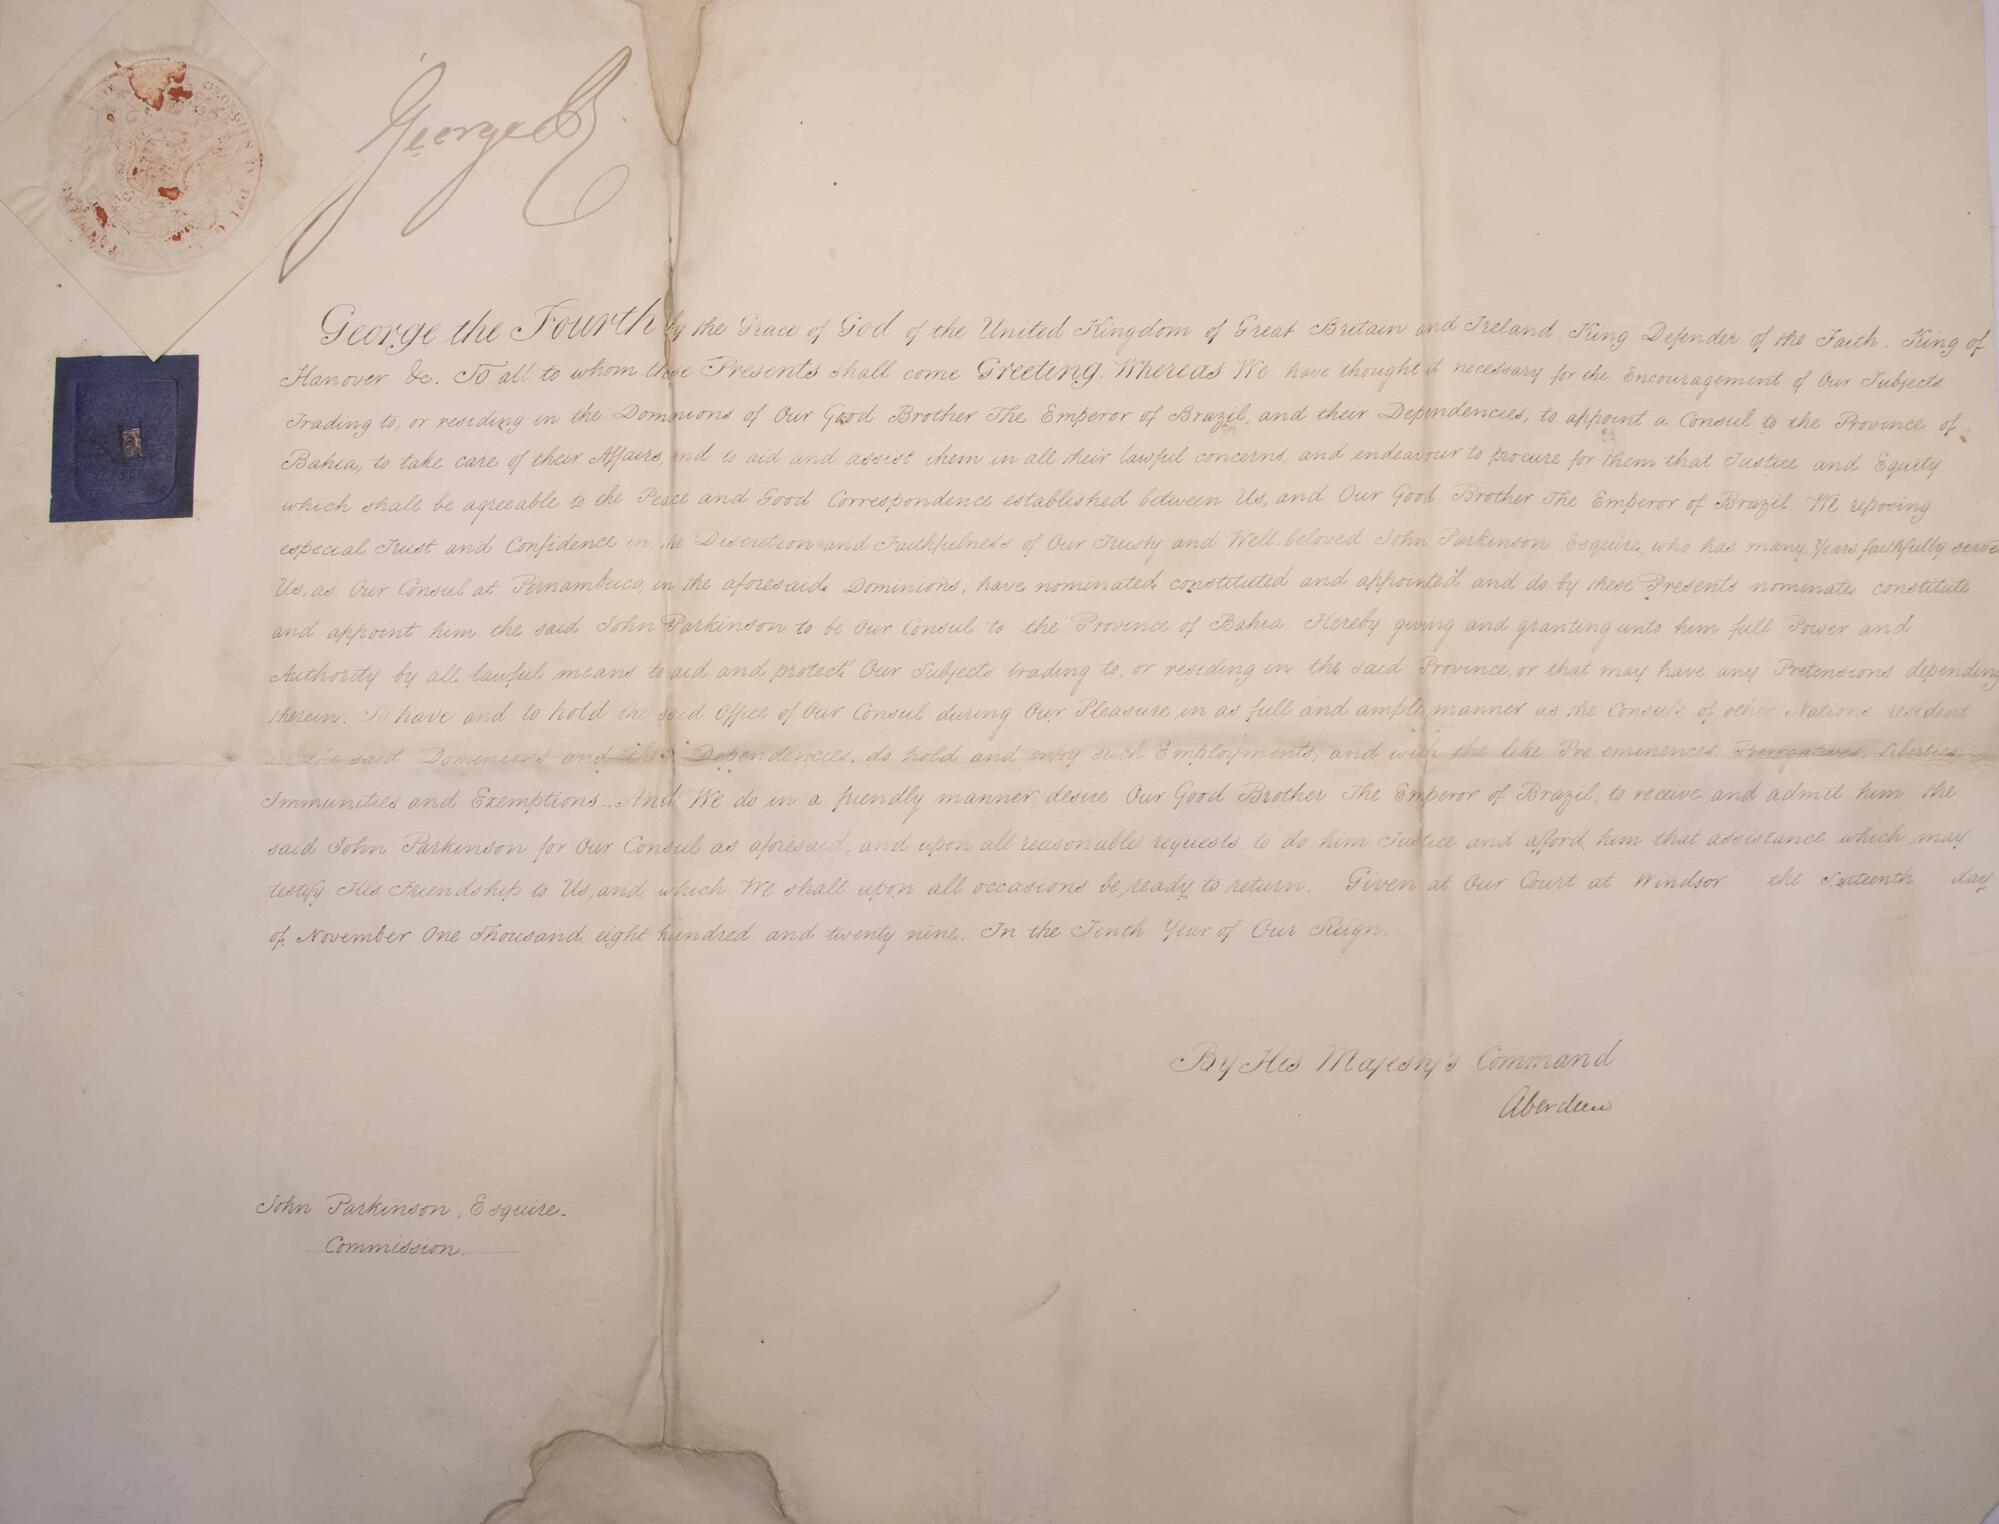 GEORGIUS IV DEI G
George R
George the Fourth by the Grace of God of the United Kingdom of Great Britain and Ireland King Defender of the Faith. King of
Hanover &c. To all to whom these Presents shall come Greeting. Whereas We have thought it necessary for the Encouragement of Our Subjects
Trading to, or residing in the Dominions of Our Good Brother The Emperor of Brazil, and their Dependencies, to appoint a Consul to the Province of
Bahia, to take care of their Affairs, and to aid and assist them in all their lawful concerns, and endeavour to procure for them that Justice and Equity
which shall be agreeable to the Peace and Good Correspondence established between Us, and Our Good Brother The Emperor of Brazil. We reposing
especial Trust and Confidence in the Discretion and Faithfulness of Our Trusty and Well-beloved John Parkinson Esquire, who has many Years faithfully served
Us, as Our Consul at Pernambuco, in the aforesaid Dominions, have nominated constituted and appointed and do by these Presents nominate constitute
and appoint him the said John Parkinson to be Our Consul to the Province of Bahia. Hereby giving and granting unto him full Power and
Authority by all lawful means to aid and protect Our Subjects trading to, or residing in the said Province, or that may have any Pretensions depending
therein. To have and to hold the said Office of Our Consul during Our Pleasure in as full and ample manner as the Consuls of other Nations resident
in the said Dominions and their Dependencies, do hold and enjoy such Employments, and with the like Pre eminences, Prerogatives, Liberties
Immunities and Exemptions. And We do in a friendly manner desire Our Good Brother The Emperor of Brazil, to receive and admit him the
said John Parkinson for Our Consul as aforesaid, and upon all reasonable requests to do him Justice and afford him that assistance which may
testify His Friendship to Us, and which We shall upon all occasions be ready to return. Given at Our Court at Windsor the Sixteenth day
of November One Thousand eight hundred and twenty nine. In the Tenth Year of Our Reign.
By His Majesty's Command
Aberdeen
John Parkinson, Esquire.
Commission.